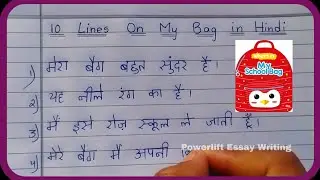 10 Lines On My Bag in Hindi
1) मेरा बैग बहुत सुंदर है।
2) यह नीले रंग का है।
3) मैं इसे रोज़ स्कूल ले जाती हूँ।
4) मेरे बैग में अपनी
My
School Bag
Powerlift Essay Writing